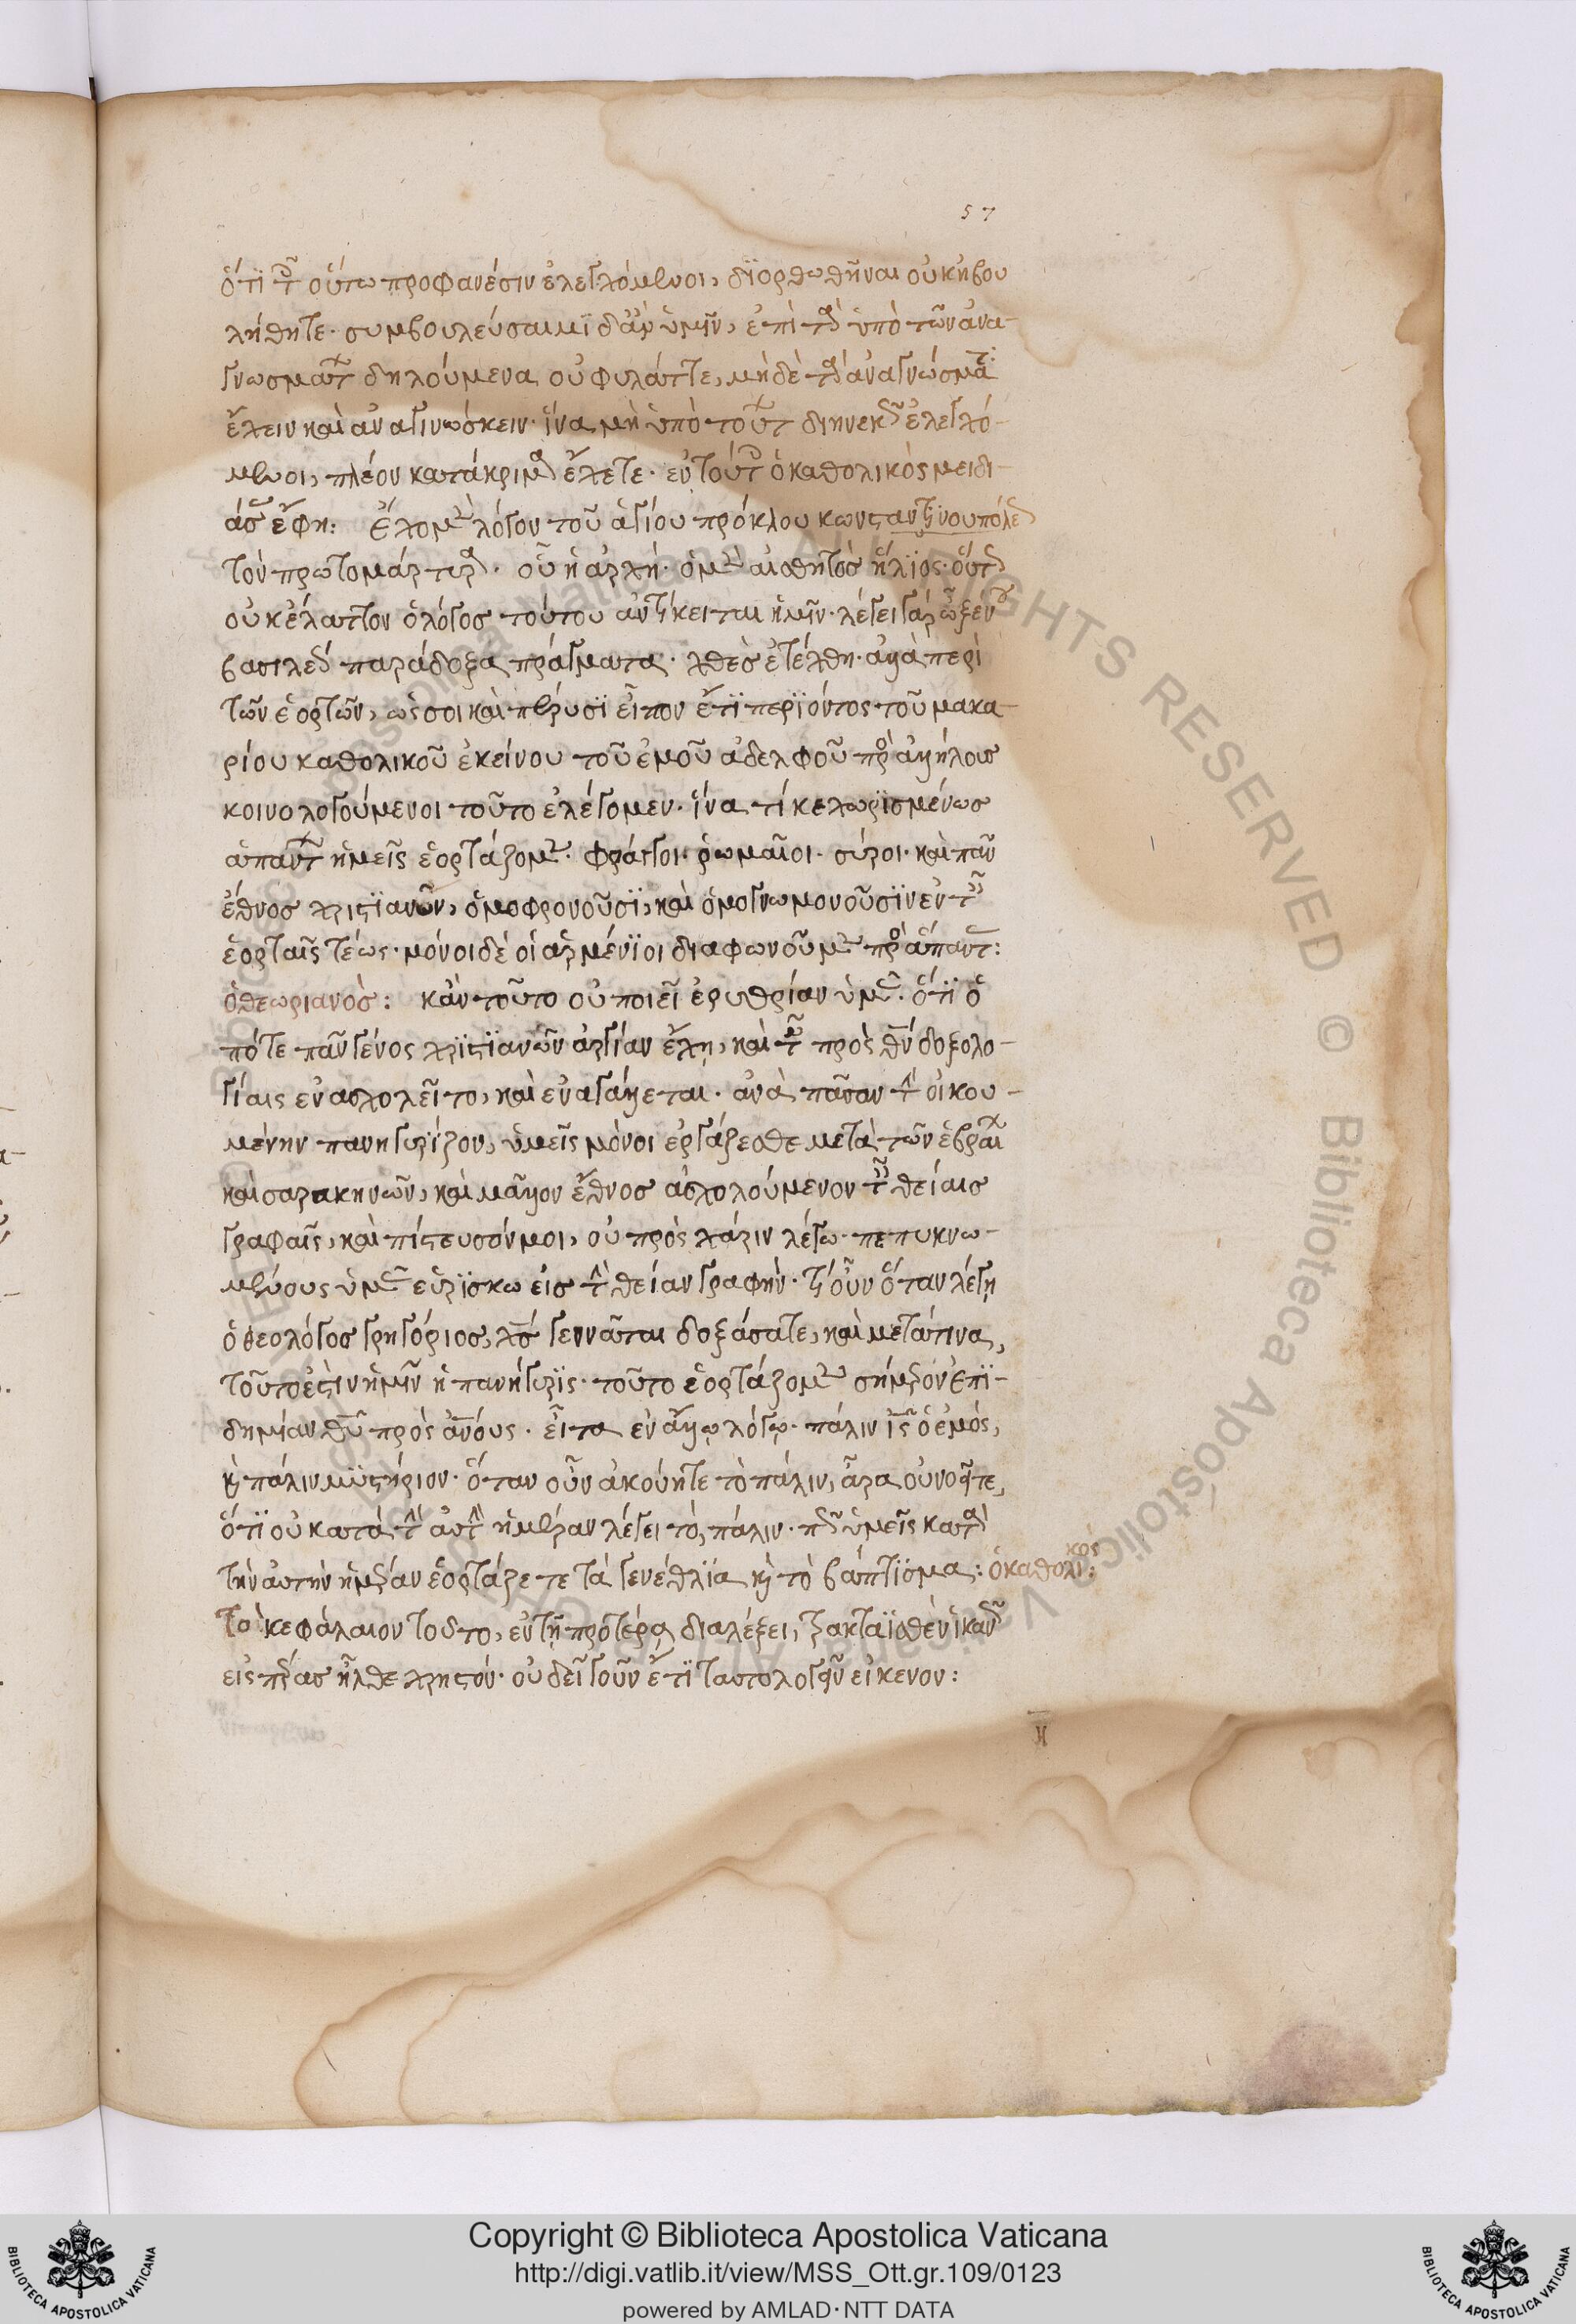 57
ὅτι τοῖς οὕτω προφανέσιν ἐλεγχόμενοι, διορθωθῆναι οὐκ ἠβου
λήθητε· συμβουλεύσαιμι δ' ἂν ὑμῖν, ἐπεὶ τὰ ὑπὸ τῶν ἀνα-
γνωσμάτων δηλούμενα οὐ φυλάττετε, μηδὲ τὰ ἀναγνώσματα
ἔχειν καὶ ἀναγινώσκειν· ἵνα μὴ ὑπὸ τούτων διηνεκῶς ἐλεγχό-
μενοι, πλέον κατάκριμα ἔχετε· ἐν τούτοις ὁ καθολικὸς μειδι-
άσας ἔφη: ἔχομεν λόγον τοῦ ἁγίου πρόκλου κωνσταντινουπόλεως
τὸν πρωτομάρτυρα· οὗ ἡ ἀρχή· ὁ μὲν αἰσθητὸς ἥλιος· οὗτος
οὐκ ἔλαττον ὁ λόγος τούτου ἀντίκειται ἡμῖν· λέγει γὰρ ὢ ξένων
βασιλέως παράδοξα πράγματα· χθὲς ἐτέχθη· ἀλλὰ περὶ
τῶν ἑορτῶν, ὥς σοι καὶ πέρυσι εἶπον ἔτι περιόντος τοῦ μακα-
ρίου καθολικοῦ ἐκείνου τοῦ ἐμοῦ ἀδελφοῦ πρὸς ἀλλήλους
κοινολογούμενοι τοῦτο ἐλέγομεν· ἵνα τί κεχωρισμένως
ἁπάντων ἡμεῖς ἑορτάζομεν· φράγγοι· ῥωμαῖοι· σύροι· καὶ πᾶν
ἔθνος χριστιανῶν, ὁμοφρονοῦσι, καὶ ὁμογνωμονοῦσιν ἐν ταῖς
ἑορταῖς τέως· μόνοι δὲ οἱ ἀρμένιοι διαφωνοῦμεν πρὸς ἅπαντας:
ὁ θεωριανὸς: κἂν τοῦτο οὐ ποιεῖ ἐρυθρίαν ὑμᾶς· ὅτι ὁ
πότε πᾶν γένος χριστιανῶν ἀργίαν ἔχῃ, καὶ ταῖς πρὸς θν δοξολο-
γίαις ἐνασχολεῖτο, καὶ ἐναγάλλεται· ἀνὰ πᾶσαν τὴν οἰκου-
μένην πανηγυρίζον, ὑμεῖς μόνοι ἐργάζεσθε μετὰ τῶν ἑβραίων
καὶ σαρακηνῶν, καὶ μᾶλλον ἔθνος ἀσχολούμενον ταῖς θείαις
γραφαῖς, καὶ πίστευσόν μοι, οὐ πρὸς χάριν λέγω· πεπυκνω-
μένους ὑμᾶς εὑρίσκω εἰς τὴν θείαν γραφήν· τί οὖν ὅταν λέγῃ
ὁ θεολόγος γρηγόριος, χς γεννᾶται δοξάσατε, καὶ μετά τινα,
τοῦτο ἐστὶν ἡμῖν ἡ πανήγυρις· τοῦτο ἑορτάζομεν σήμερον ἐπι-
δημίαν θυ πρὸς ἀνους· εἶτα ἐν ἄλλῳ λόγῳ· πάλιν ις ὁ ἐμός,
καὶ πάλιν μυστήριον· ὅταν οὖν ἀκούητε τὸ πάλιν, ἆρα οὐ νοεῖτε,
ὅτι οὐ κατὰ τὴν αὐτὴν ἡμέραν λέγει τὸ πάλιν· πῶς ὑμεῖς κατὰ
τὴν αὐτὴν ἡμέραν ἑορτάζετε τὰ γενέθλια καὶ τὸ βάπτισμα: ὁ καθολικός:
τὸ κεφάλαιον τοῦτο, ἐν τῇ προτέρᾳ διαλέξει, ἐξετασθὲν ἱκανῶς
εἰς πέρας ἦλθε χρηστόν· οὐ δεῖ γοῦν ἔτι ταυτολογεῖν εἰκενον:
η
Copyright © Biblioteca Apostolica Vaticana
http://digi.vatlib.it/view/MSS_Ott.gr.109/0123
powered by AMLAD·NTT DATA